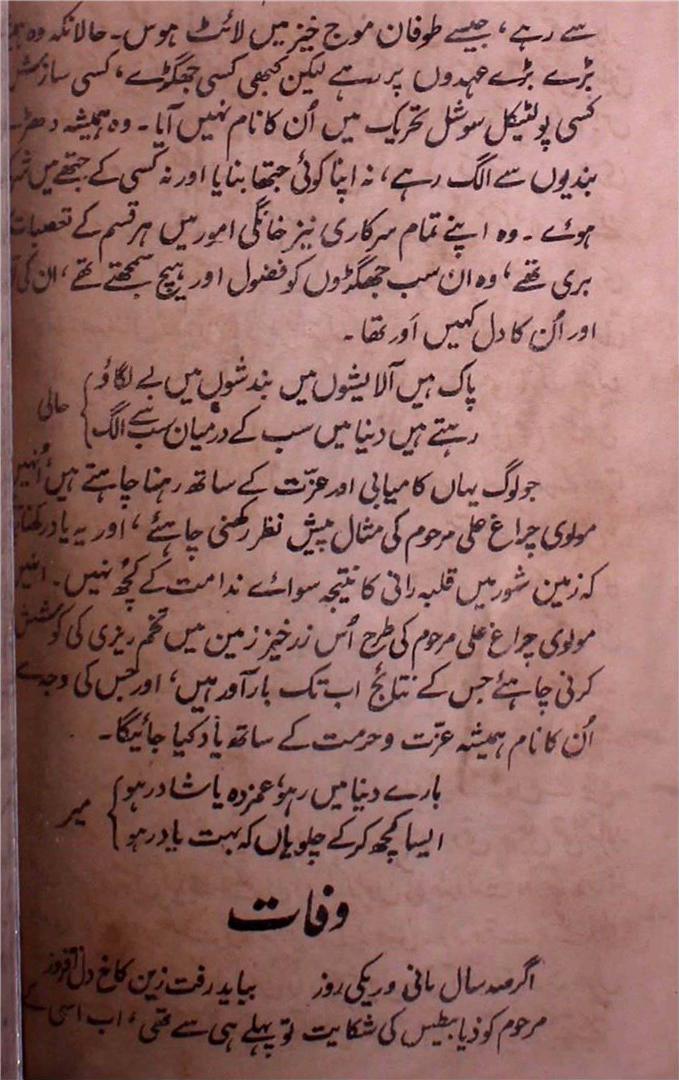 سے رہے، جیسے طوفان موج خیز میں لائٹ ہوس۔ حالانکہ وہ
بڑے بڑے عہدوں پر رہے لیکن کبھی کسی جھگڑے، کسی سازش
کسی پولٹیکل سوشل تحریک میں اُن کا نام نہیں آیا۔ وہ ہمیشہ دھڑے
بندیوں سے الگ رہے، نہ اپنا کوئی جتھا بنایا اور نہ کسی کے جتھے میں
ہوئے۔ وہ اپنے تمام سرکاری نیز خانگی امور میں ہر قسم کے تعصبات
بری تھے، وہ ان سب جھگڑوں کو فضول اور ہیچ سمجھتے تھے، ان کی
اور اُن کا دل کہیں اَور تھا۔
پاک ہیں آلایشوں میں بندشوں میں بے لگاؤ
رہتے ہیں دنیا میں سب کے درمیان سب سے الگ } حالی
جو لوگ یہاں کامیابی اور عزّت کے ساتھ رہنا چاہتے ہیں، اُنہیں
مولوی چراغ علی مرحوم کی مثال پیش نظر رکھنی چاہئے، اور یہ یاد رکھنا
کہ زمین شور میں قلبہ رانی کا نتیجہ سوائے ندامت کے کچھ نہیں۔ انہیں
مولوی چراغ علی مرحوم کی طرح اُس زرخیز زمین میں تخم ریزی کی کوشش
کرنی چاہئے جس کے نتائج اب تک بارآور ہیں، اور جس کی وجہ سے
اُن کا نام ہمیشہ عزّت و حرمت کے ساتھ یاد کیا جائیگا۔
بارے دنیا میں رہو، غمزدہ یا شاد رہو
ایسا کچھ کر کے چلو یاں کہ بہت یاد رہو } میر
وفات
اگر صد سال مانی ور یکی روز بباید رفت زین کاخ دل افروز
مرحوم کو ذیابیطس کی شکایت تو پہلے ہی سے تھی، اب اسی